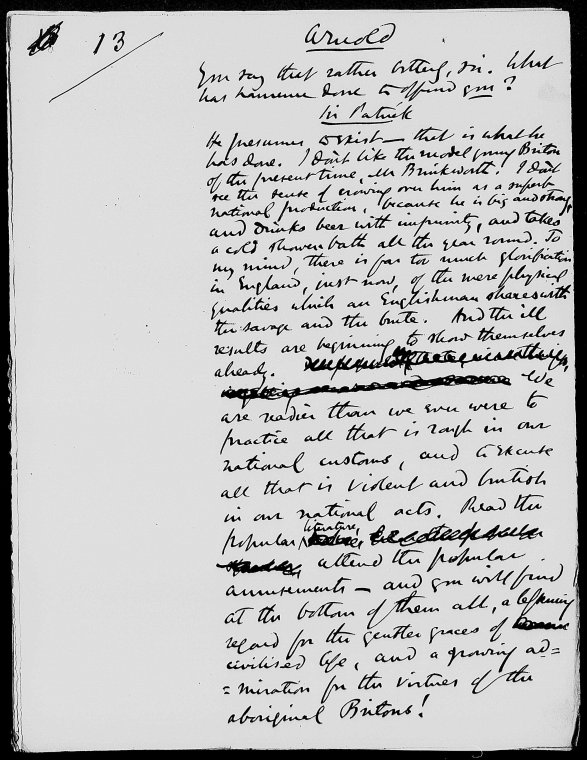 13
Arnold
You say that rather bitterly, sir. What
has hammer done to offend you?
Sir Patrick
He presumes to exist — that is what he
has done. I don't like the model young Briton
of the present time, Mr Brinkworth! I don't
see the sense of crowing over him as a superb
national production, because he is big and strong,
and drinks beer with impunity, and takes
a cold shower bath all the year round. To
my mind, there is far too much glorification
in England, just now, of the mere physical
qualities which an Englishman shares with
the savage and the brute. And the ill
results are beginning to show themselves
already.
We
are readier than we ever were to
practice all that is rough in our
national customs, and to excuse
all that is violent and brutish
in our national acts. Read the
popular literature,
attend the popular
amusements — and you will find
at the bottom of them all, a
regard for the gentler graces of
civilised life, and a growing ad=
=miration for the virtues of the
aboriginal Britons!